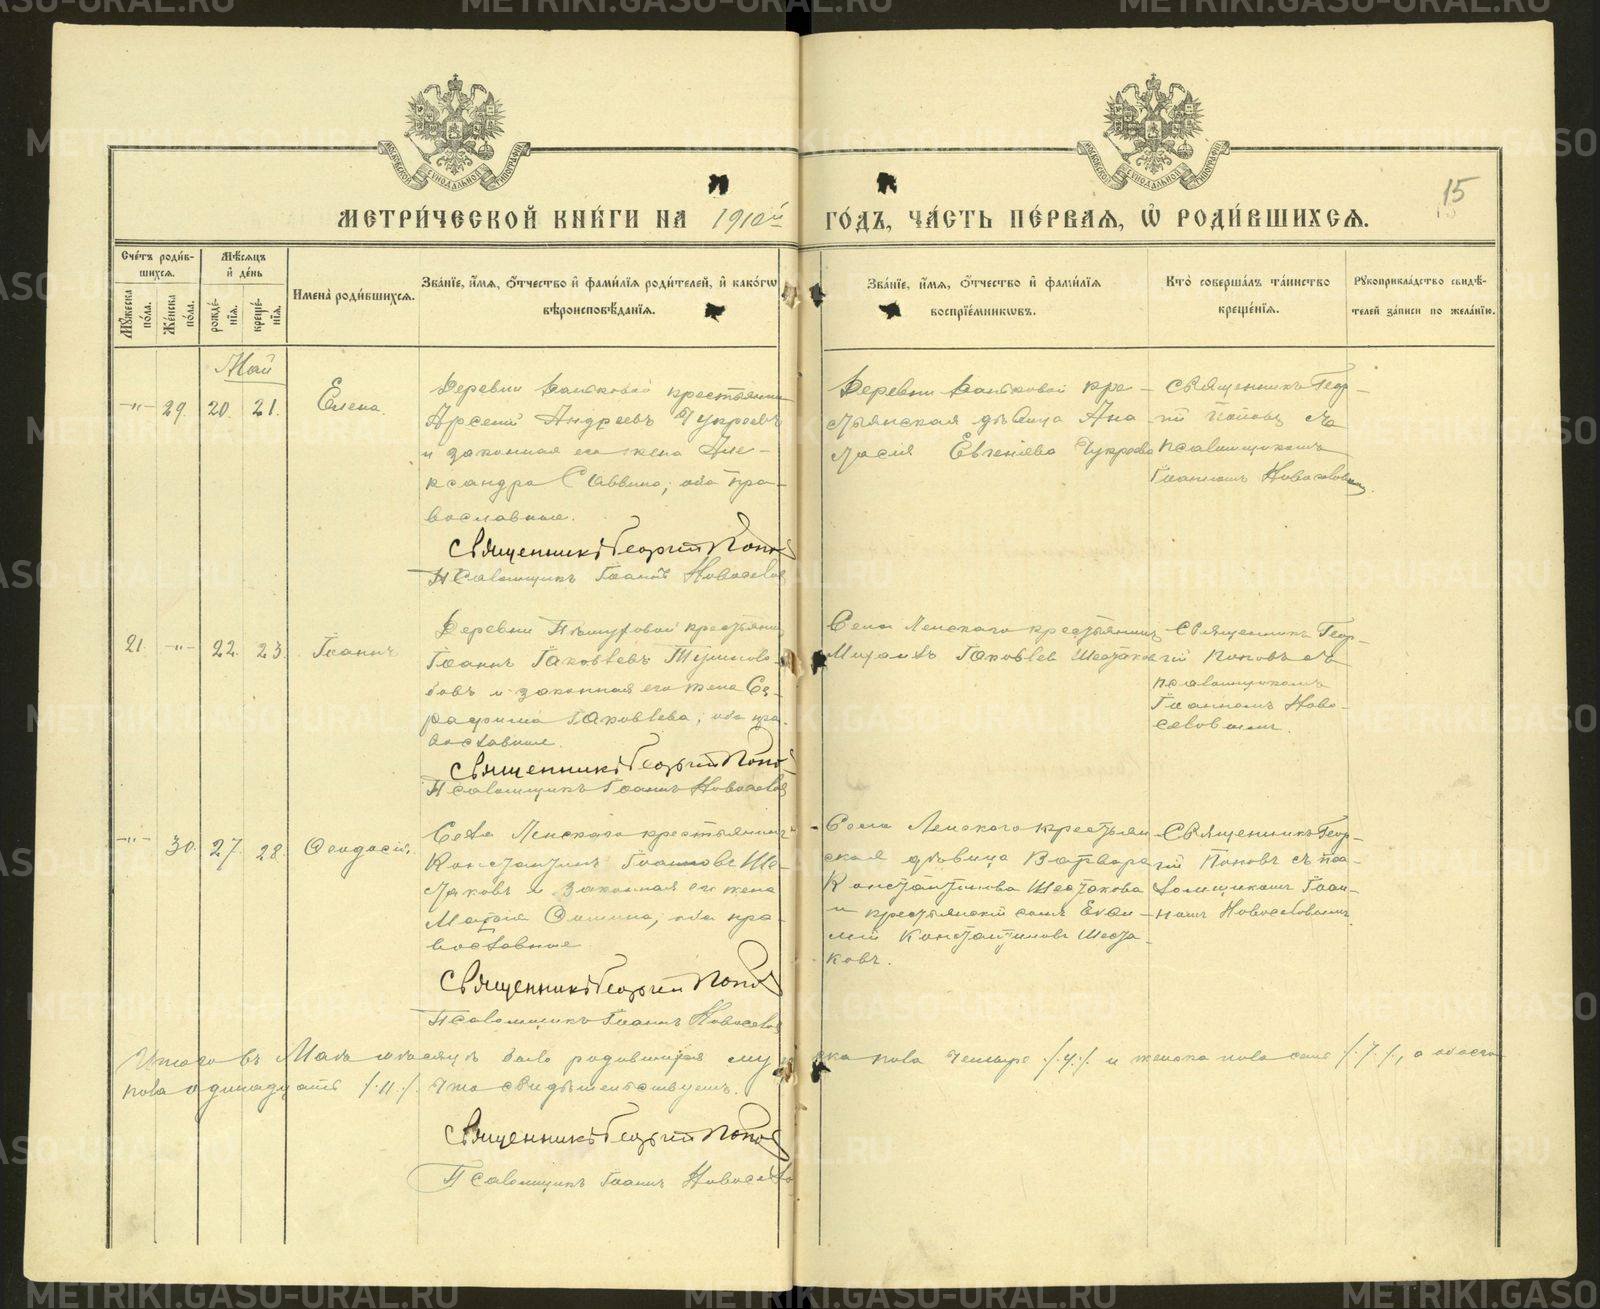 15
МЕТРИ́ЧЕСКОЙ КНИ́ГИ НА 1910й ГО́ДЪ, ЧА́СТЬ ПЕ́РВАЯ, Ѡ҆ РОДИ́ВШИХСЯ.
Сче́тъ роди́вшихся.
Мѣ́сяцъ и҆ де́нь
Мꙋ́жеска по́ла.
Же́нска по́ла.
рожде́нїя.
креще́нїя.
И҆мена̀ роди́вшихся.
Зва́нїе, и҆́мя, ѻ҆́тчество и҆ фами́лїя роди́телей, и҆ како́гѡ
вѣроисповѣ́данїя.
Зва́нїе, и҆́мя, ѻ҆́тчество и҆ фами́лїя
воспрїе́мникѡвъ.
Кто̀ соверша́лъ та́инство
креще́нїя.
Рꙋкоприкла́дство свидѣ́-
телей за́писи по жела́нїю.
Май
-"- 29. 20. 21.
Елена.
Деревни крестьянинъ
Арсеній Андреевъ
и законная его жена Але-
ксандра Саввина, оба пра-
вославные.
Священникъ Георгій Поповъ
Псаломщикъ Іоаннъ Новоселовъ
Деревни кре-
стьянская дѣвица Ана-
стасія Евгеніева
Священникъ Геор-
гій Поповъ съ
псаломщикомъ
Іоанномъ Новоселовымъ.
21. -"- 22. 23.
Іоаннъ
Деревни крестьянинъ
Іоаннъ Іаковлевъ
и законная его жена Се-
рафима Іаковлева, оба пра-
вославные.
Священникъ Георгій Поповъ
Псаломщикъ Іоаннъ Новоселовъ
Села Ленскаго крестьянинъ
Михаилъ Іаковлев Шестаков
Священникъ Геор-
гій Поповъ съ
псаломщикомъ
Іоанномъ Ново-
селовымъ.
-"- 30. 27. 28.
Ѳеодосія.
Села Ленскаго крестьянинъ
Константинъ Іоанновъ Ше-
стаковъ и законная его жена
Марія, оба пра-
вославные
Священникъ Георгій Поповъ
Псаломщикъ Іоаннъ Новоселовъ
Села Ленскаго крестьян-
ская дѣвица Варвара
Константинова Шестакова
и крестьянскій сынъ Евѳи-
мій Константиновъ Шеста-
ковъ.
Священникъ Геор-
гій Поповъ съ пса-
ломщикомъ Іоан-
номъ Новоселовымъ
Итого въ Маѣ мѣсяцѣ было родившихся мужеска пола четыре /.4./. и женска пола семь /.7./., а обоего
пола одинадцать /.11./. Что свидѣтельствуемъ.
Священникъ Георгій Поповъ
Псаломщикъ Іоаннъ Новоселовъ
METRIKI.GASO-URAL.RU